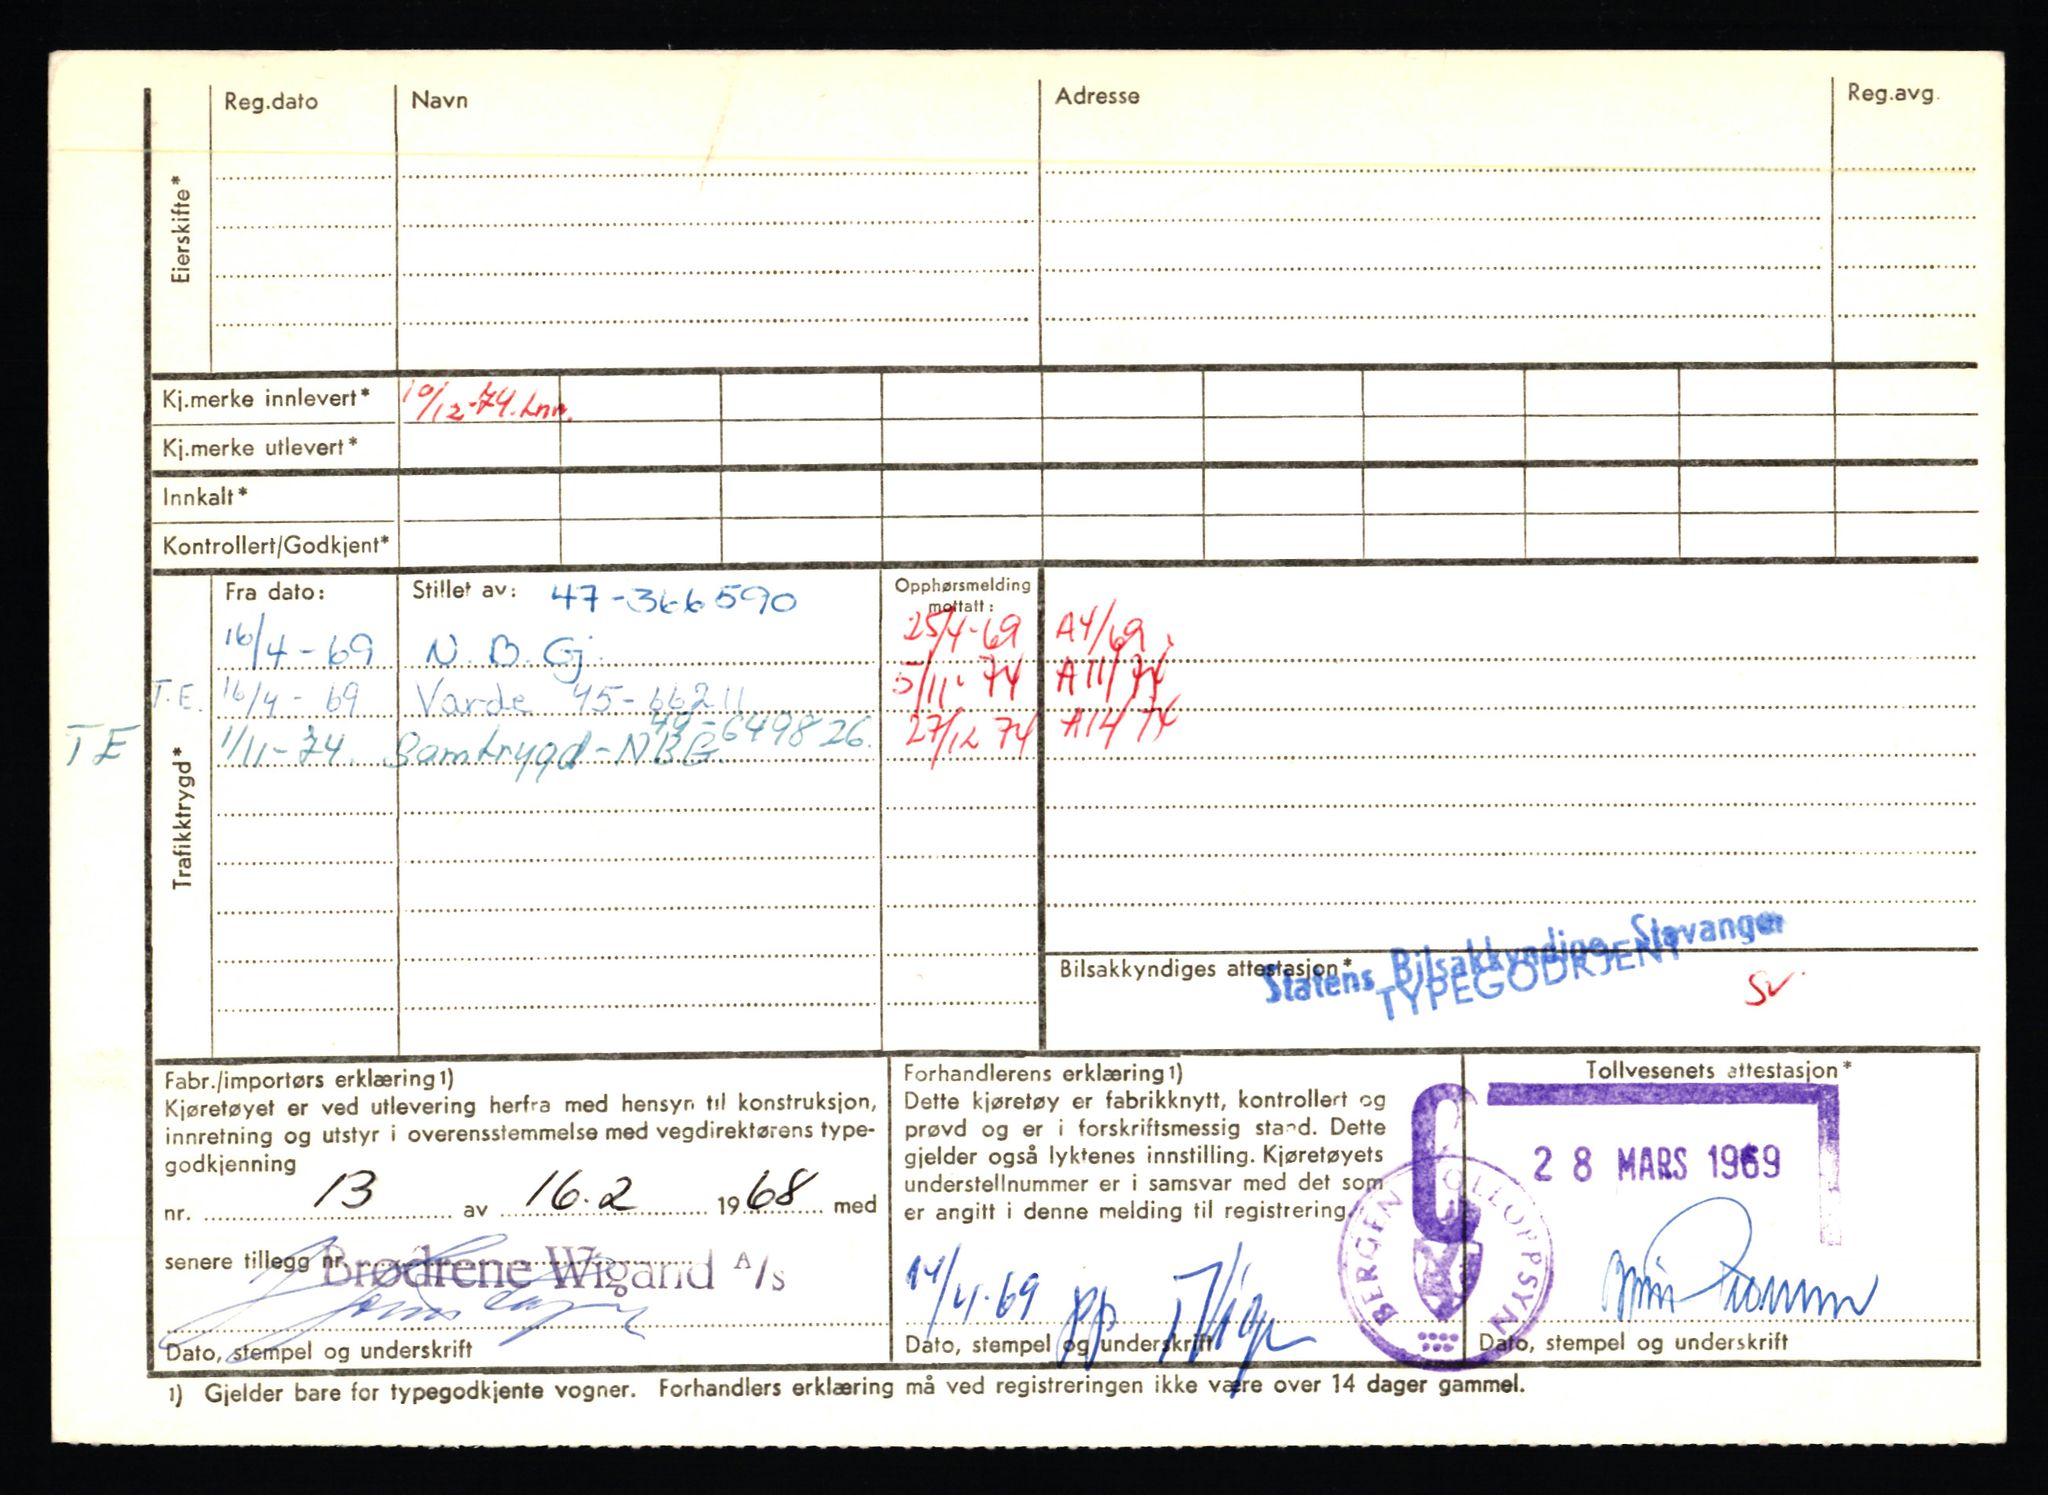 Reg.dato Navn Adresse Reg.avg.
Eierskifte*
Kj.merke innlevert* 10/12-74. Lnn.
Kj.merke utlevert*
Innkalt*
Kontrollert/Godkjent*
Fra dato: Stillet av: 47-366590 Opphørsmelding mottatt:
16/4-69 N. B. Gj. 25/4-69 A4/69
T.E. 16/4-69 Varde 45-66211 5/11-74 A11/74
49-649826.
TE 1/11-74. Samtrygd-NBG. 27/12 74 A14/74
Trafikktrygd*
Statens Bilsakkyndige, Stavanger
Bilsakkyndiges attestasjon* TYPEGODKJENT
Sv
Fabr./importørs erklæring 1)
Kjøretøyet er ved utlevering herfra med hensyn til konstruksjon,
innretning og utstyr i overensstemmelse med vegdirektørens type-
godkjenning
nr. 13 av 16.2 1968 med
senere tillegg nr.
Brødrene Wigand A/s
Dato, stempel og underskrift
Forhandlerens erklæring 1)
Dette kjøretøy er fabrikknytt, kontrollert og
prøvd og er i forskriftsmessig stand. Dette
gjelder også lyktenes innstilling. Kjøretøyets
understellnummer er i samsvar med det som
er angitt i denne melding til registrering.
14/4-69 pp
Dato, stempel og underskrift
Tollvesenets attestasjon*
28 MARS 1969
BERGEN TOLLOPPSYN
Dato, stempel og underskrift
1) Gjelder bare for typegodkjente vogner. Forhandlers erklæring må ved registreringen ikke være over 14 dager gammel.